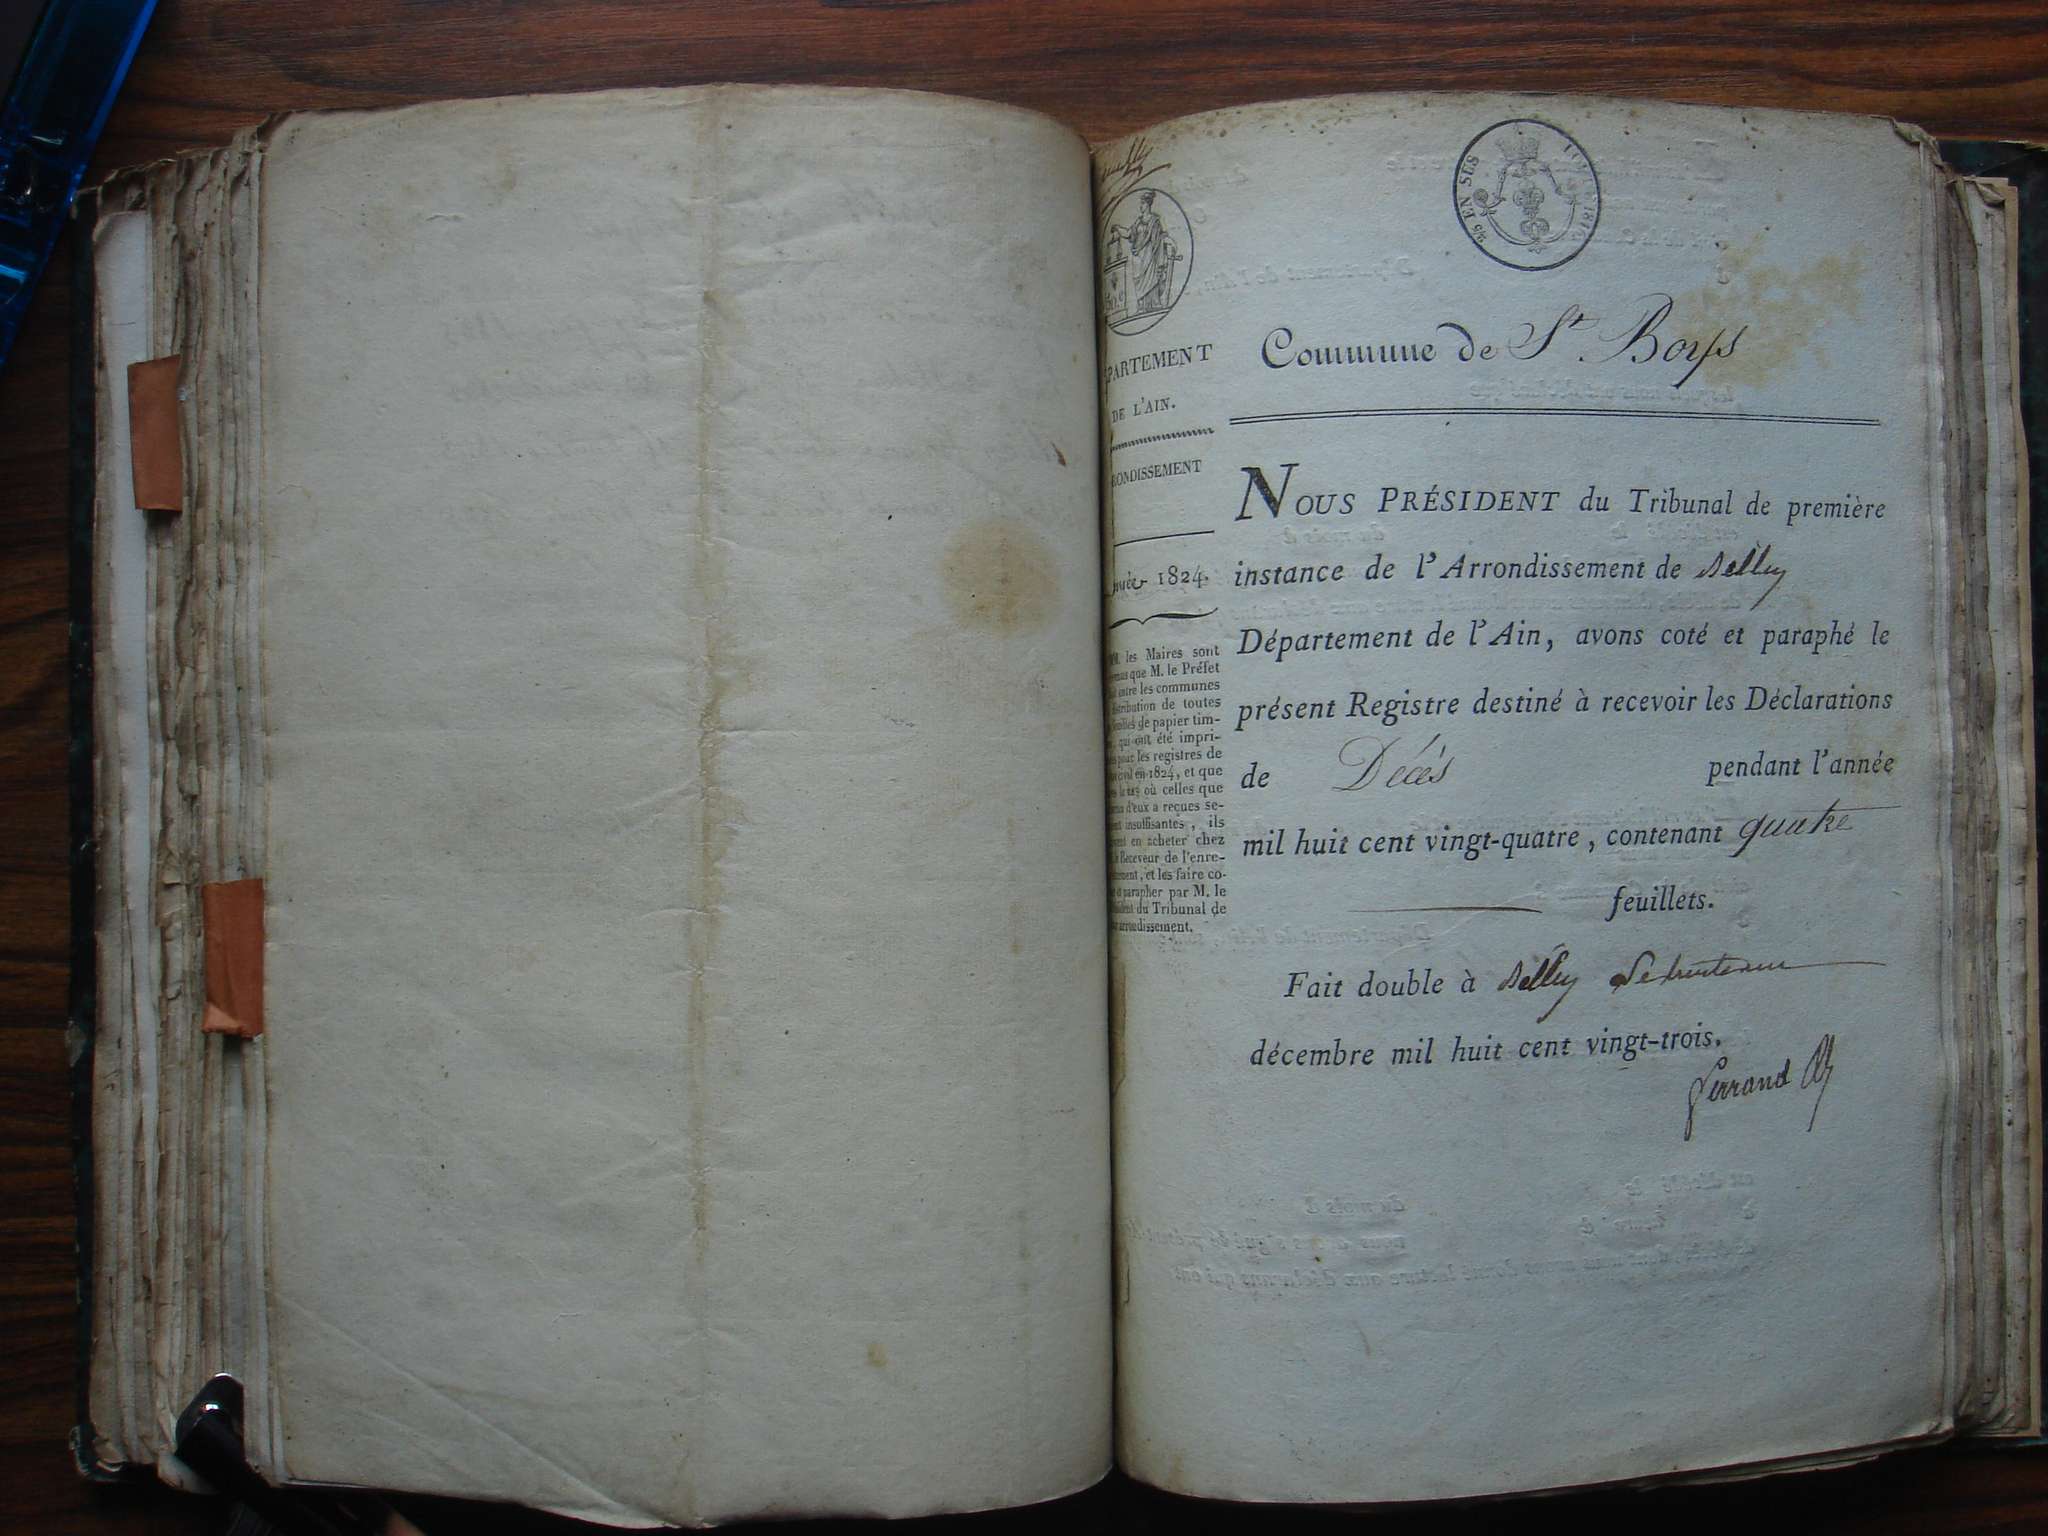 25 EN SUS
50.c
PARTEMENT
DE L'AIN.
ONDISSEMENT
1824.
les Maires sont
que M. le Préfet
entre les communes
de toutes
de papier tim-
qui ont été impri-
pour les registres de
civil en 1824, et que
où celles que
d'eux a reçues se-
insuffisantes, ils
en acheter chez
Receveur de l'enre-
, et les faire co-
parapher par M. le
du Tribunal de
arrondissement.
Commune de St. Boys
NOUS PRÉSIDENT du Tribunal de première
instance de l'Arrondissement de Belley
Département de l'Ain, avons coté et paraphé le
présent Registre destiné à recevoir les Déclarations
de Décès pendant l'année
mil huit cent vingt-quatre, contenant quatre
feuillets.
Fait double à Belley
décembre mil huit cent vingt-trois.